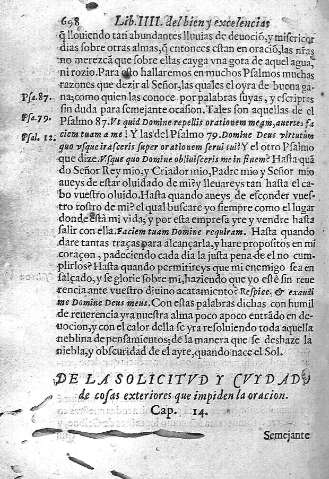 698 Lib. IIII. del bien y excelencias
q̃ lloviendo tan abundantes lluuias de deuociõ, y misericor
dias sobre otras almas, q̃ entonces estan en oraciõ, las nr̃as
no merezcã que sobre ellas cayga vna gota de aquel agua,
ni rozio. Para esto hallaremos en muchos Psalmos muchas
razones que dezir al Señor, las quales el oyra de buena ga-
Psa. 87. na, como quien las conoce por palabras suyas, y escriptas
sin duda para semejante ocasion. Tales son aquellas de el
Psa. 79. Psalmo 87. Vt quid Domine repellis orationem meam, auertis fa
Psal. 12. ciem tuam a me? Y las del Psalmo 79. Domine Deus virtutum
quo vsque irasceris super orationem serui tui? Y el otro Psalmo
que dize. Vsque quo Domine obliuisceris me in finem? Hasta quã
do Señor Rey mio, y Criador mio, Padre mio y Señor mio
aueys de estar oluidado de mi, y lleuareys tan hasta el ca-
bo vuestro oluido. Hasta quando aueys de esconder vues-
tro rostro de mi? el qual buscarè yo siempre como el lugar
donde està mi vida, y por esta empresa yre y vendre hasta
salir con ella. Faciem tuam Domine requiram. Hasta quando
dare tantas traças para alcançarla, y hare propositos en mi
coraçon, padeciendo cada dia la justa pena de el no cum-
plirlos? Hasta quando permitireys que mi enemigo sea en
salçado, y se glorie sobre mi, haziendo que yo estè sin reue
rencia ante vuestro diuino acatamiento? Respice, & exaudi
me Domine Deus meus. Con estas palabras dichas con humil
de reuerencia yra nuestra alma poco apoco entrãdo en de-
uocion, y con el calor della se yra resoluiendo toda aquella
neblina de pensamientos; de la manera que se deshaze la
niebla, y obscuridad de el ayre, quando nace el Sol.
DE LA SOLICITVD Y CVYDADO
de cosas exteriores que impiden la oracion.
Cap. 14.
Semejante